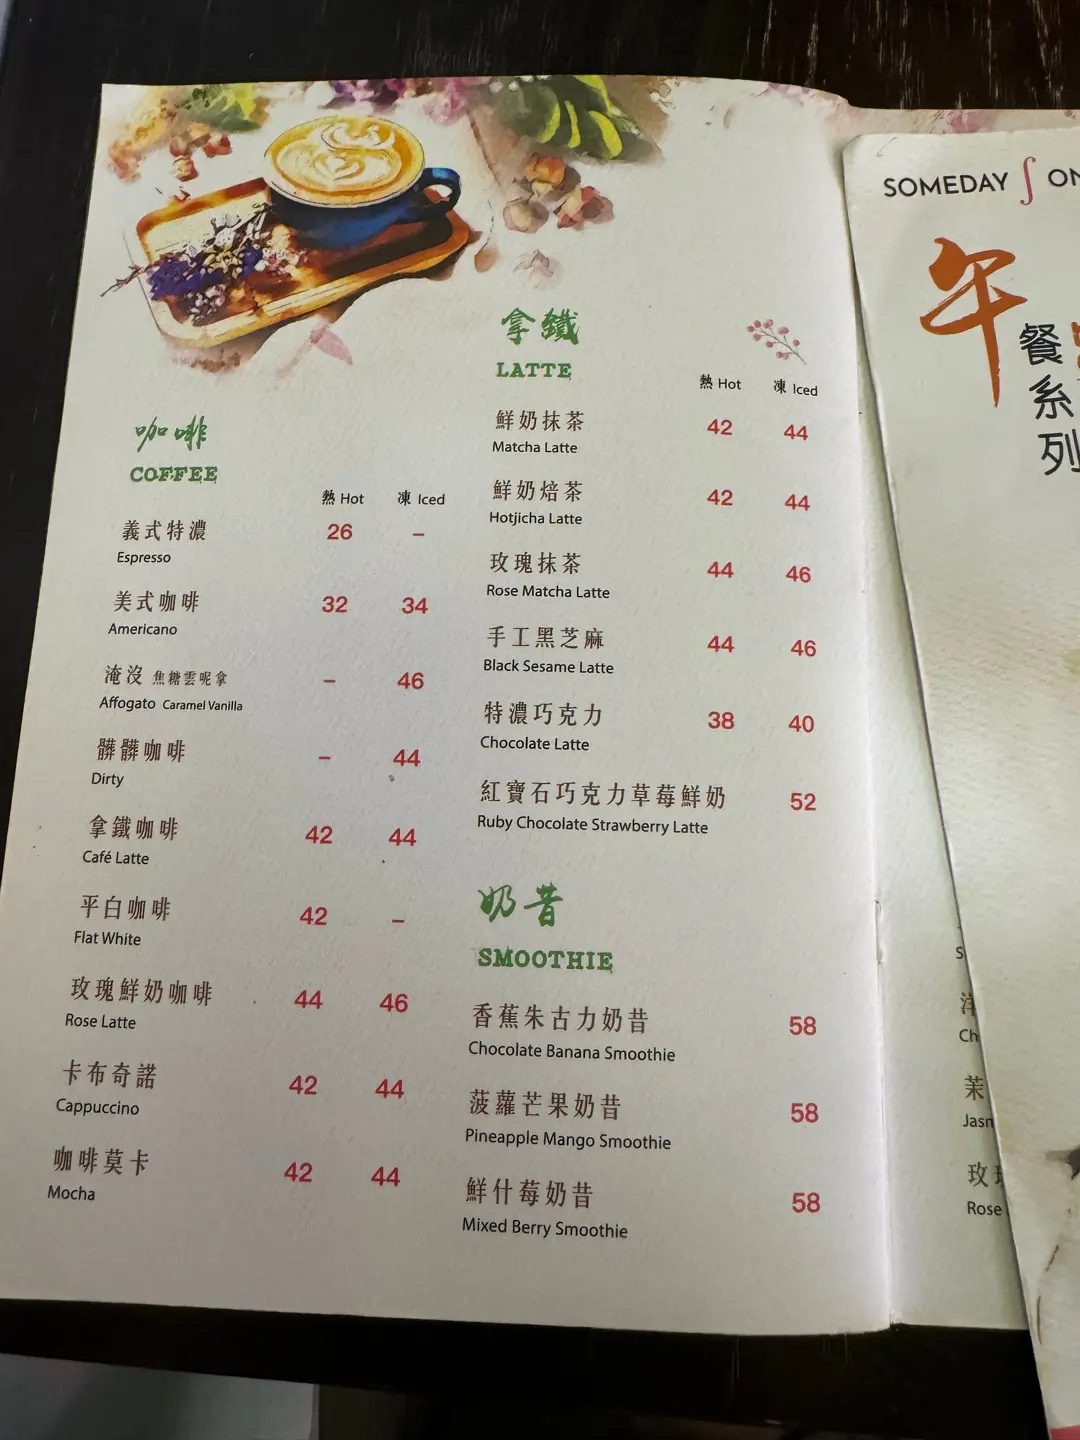 咖啡
COFFEE
熱 Hot 凍 Iced
義式特濃 26 –
Espresso
美式咖啡 32 34
Americano
淹沒 焦糖雲呢拿 – 46
Affogato Caramel Vanilla
髒髒咖啡 – 44
Dirty
拿鐵咖啡 42 44
Café Latte
平白咖啡 42 –
Flat White
玫瑰鮮奶咖啡 44 46
Rose Latte
卡布奇諾 42 44
Cappuccino
咖啡莫卡 42 44
Mocha
拿鐵
LATTE
熱 Hot 凍 Iced
鮮奶抹茶 42 44
Matcha Latte
鮮奶焙茶 42 44
Hotjicha Latte
玫瑰抹茶 44 46
Rose Matcha Latte
手工黑芝麻 44 46
Black Sesame Latte
特濃巧克力 38 40
Chocolate Latte
紅寶石巧克力草莓鮮奶 52
Ruby Chocolate Strawberry Latte
奶昔
SMOOTHIE
香蕉朱古力奶昔 58
Chocolate Banana Smoothie
菠蘿芒果奶昔 58
Pineapple Mango Smoothie
鮮什莓奶昔 58
Mixed Berry Smoothie
SOMEDAY ON
午
餐系列
洋
Ch
茉
Jasn
玫瑰
Rose